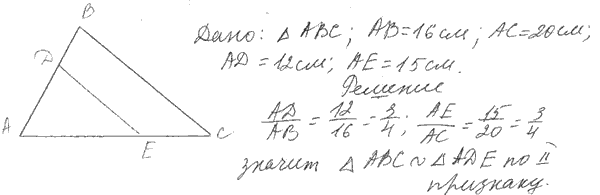 B
D
A
E
C
Дано: △ABC; AB=16см; AC=20см;
AD=12см; AE=15см.
Решение
AD/AB = 12/16 = 3/4; AE/AC = 15/20 = 3/4
значит △ABC ~ △ADE по II
признаку.